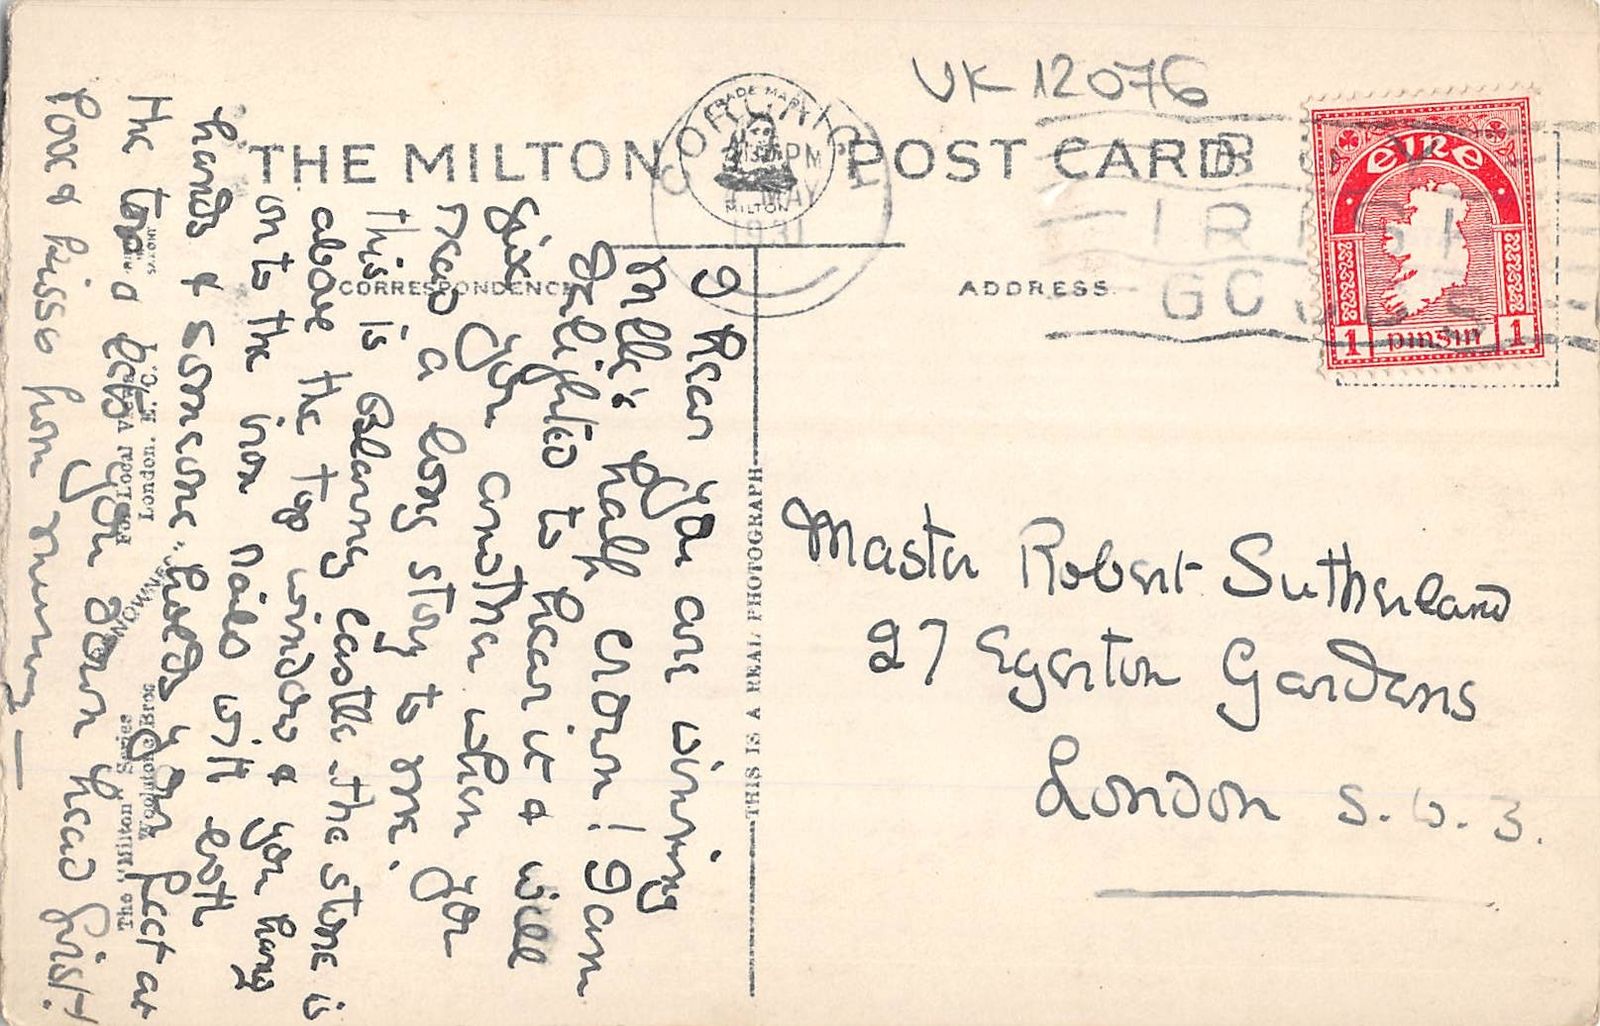 UK 12076
THE MILTON POST CARD
TRADE MARK
MILTON
PM
MAY
1931
B
IRISH
GOODS
EIRE
1 PINSIN 1
CORRESPONDENCE
ADDRESS
I hear you are winning
Mlle's half crown! I am
delighted to hear it & will
give you another when you
read a long story to me.
This is Blarney castle - the stone is
above the top window & you hang
on to the iron rails with both
hands & someone holds your feet at
the top & lets you down head first!
Love & kisses from Mummy —
Master Robert Sutherland
27 Egerton Gardens
London S.W.3.
THIS IS A REAL PHOTOGRAPH
The "Milton" Series
Woolstone Bros
London. E.C.
For Local View